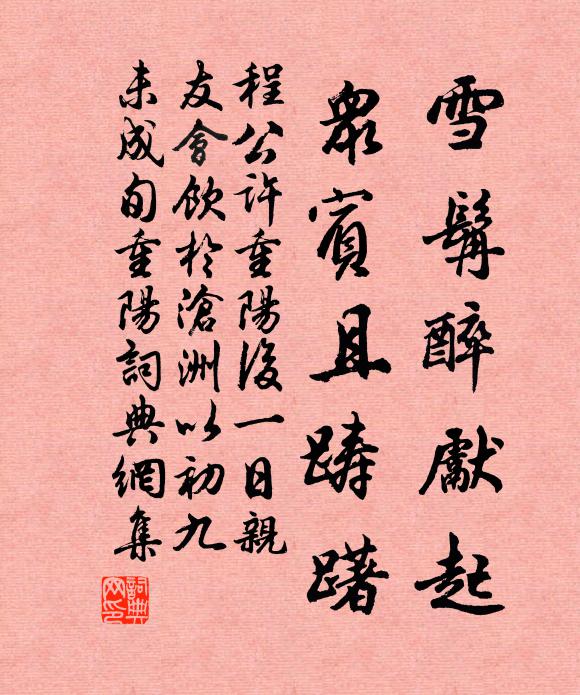 雪髯醉獻起
眾賓且踌躇
程公許重陽後一日親
友會飲於滄洲以初九
未成旬重陽詞典網集
詞典网印